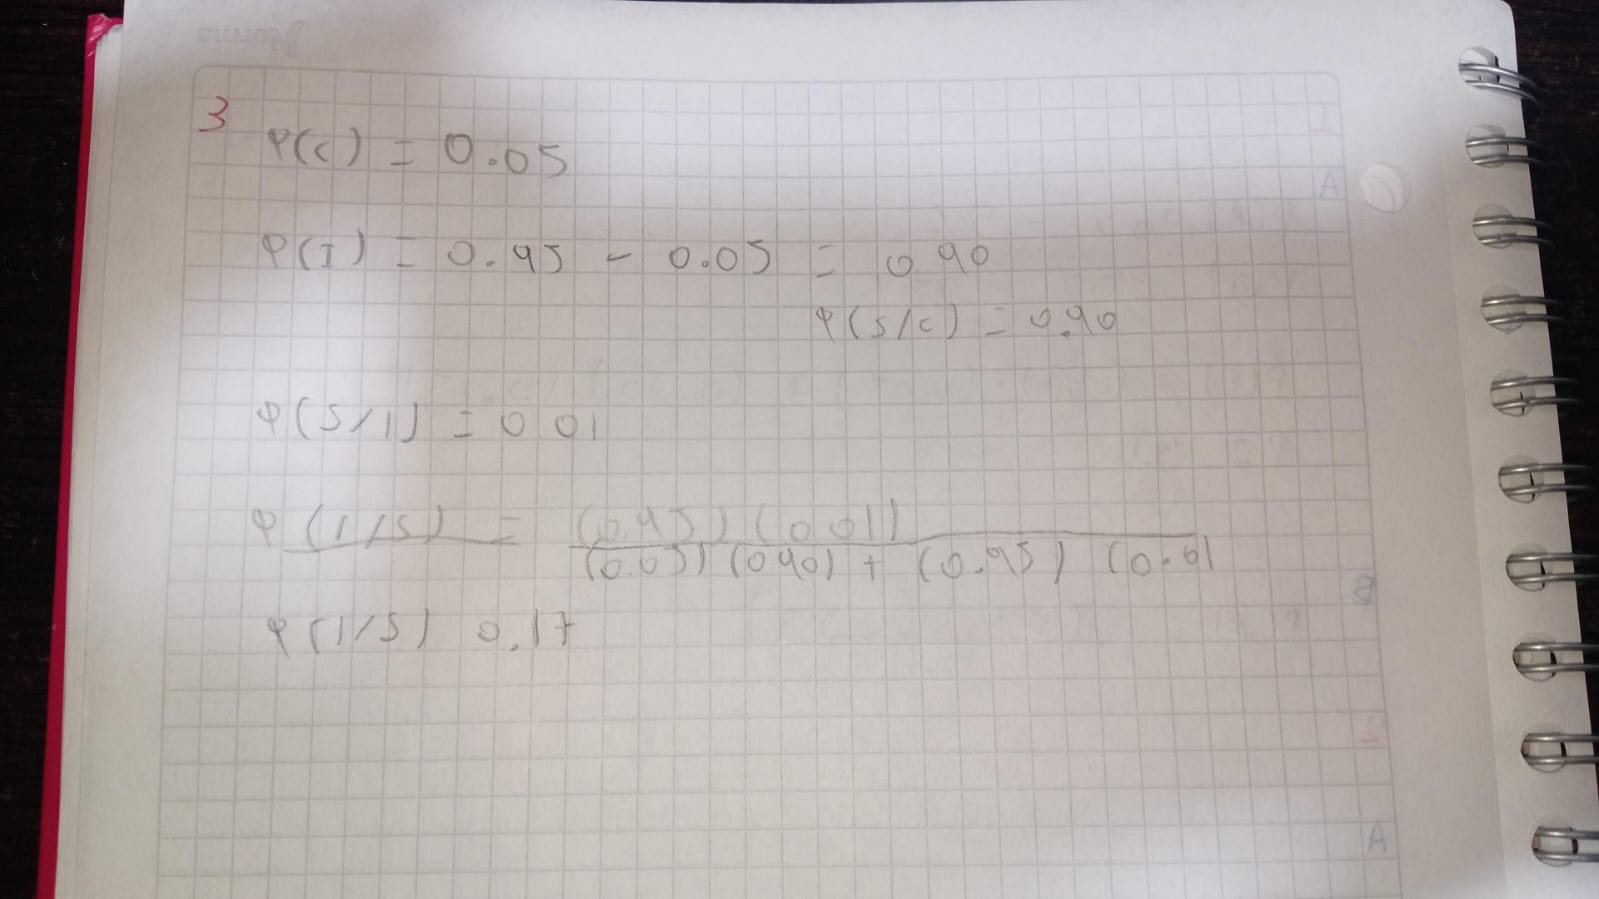 3
P(C) = 0.05
P(I) = 0.95 - 0.05 = 0 90
P(S/C) = 0.90
P(S/I) = 0 01
P(I/S) = (0.95) (0 01)
(0.05) (0 90) + (0.95) (0.01
P(I/S) 0.17